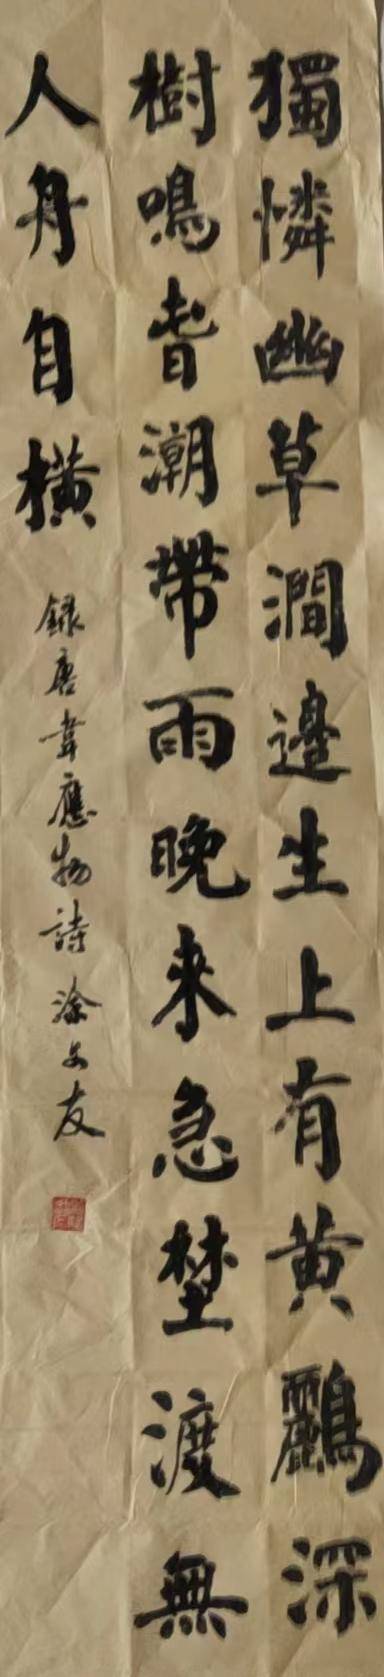 獨憐幽草澗邊生上有黄鸝深
樹鳴舂潮帶雨晚来急埜渡無
人舟自橫
録唐韋應物詩 涂文友